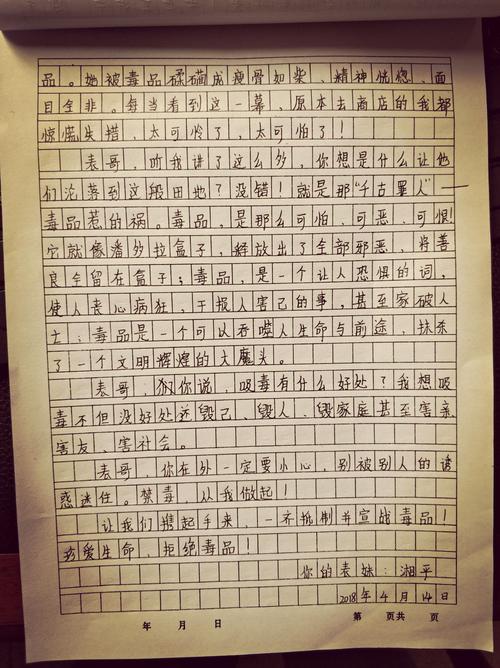 品。她被毒品磋磨成瘦骨如柴、精神恍惚、面
目全非。每当看到这一幕，原本去商店的我都
惊慌失措，太可怜了，太可怕了！
表哥，听我讲了这么多，你想是什么让他
们沦落到这般田地？没错！就是那“千古罪人”——
毒品惹的祸。毒品，是那么可怕，可恶，可恨！
它就像潘多拉盒子，释放出了全部邪恶，将善
良全留在盒子；毒品，是一个让人恐惧的词，
使人丧心病狂，干损人害己的事，甚至家破人
亡；毒品是一个可以吞噬人生命与前途，抹杀
了一个文明辉煌的大魔头。
表哥，你说，吸毒有什么好处？我想吸
毒不但没好处还毁己、毁人、毁家庭甚至害亲
害友、害社会。
表哥，你在外一定要小心，别被别人的诱
惑迷住。禁毒，从我做起！
让我们携起手来，一齐抵制并宣战毒品！
珍爱生命，拒绝毒品！
你的表妹：湘平
2018年4月14日
年 月 日 第 页共 页